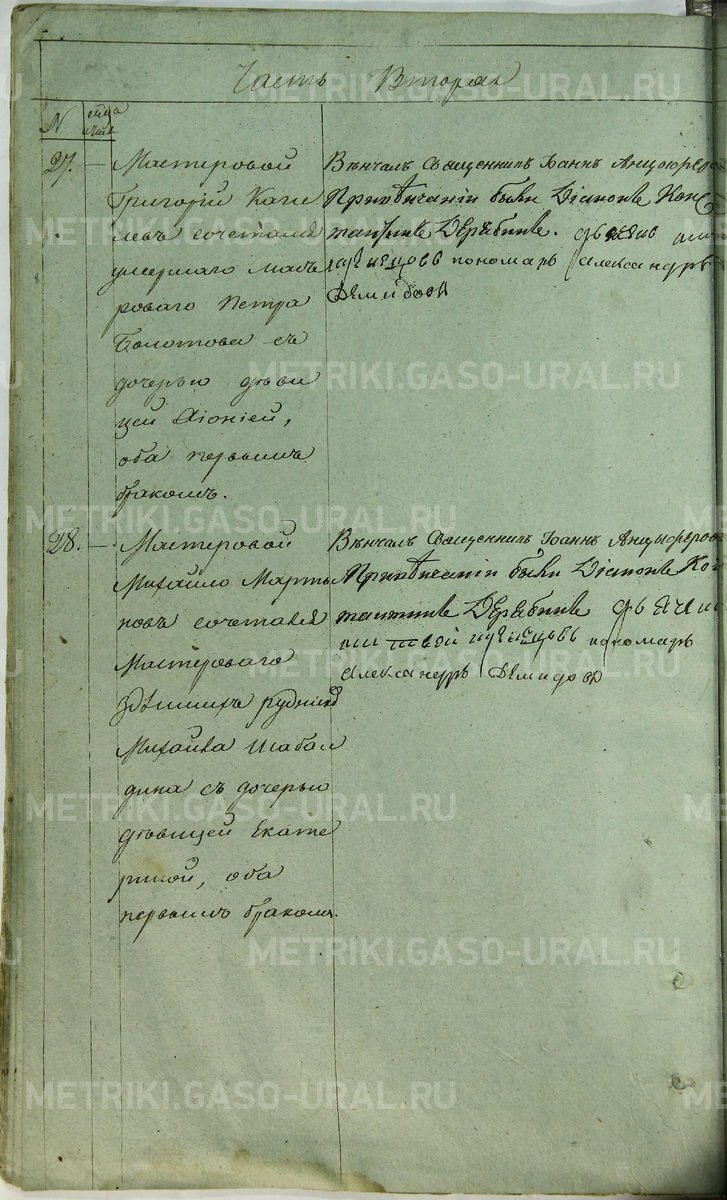 Часть Вторая
N
27. — Мастеровой
Григорій Каги
левъ сочетался
умершаго масте
роваго Петра
Болотова съ
дочерью дѣви
цей
оба первымъ
бракомъ.
Вѣнчалъ Священникъ Іоаннъ
При вѣнчаніи были Діаконъ Кон
стантинъ Дерябинъ. дьячок
пономарь Александръ
Демидовъ
28. — Мастеровой
Михайло Марты
новъ сочетался
Мастероваго
здѣшнихъ рудник
Михайла Шабал
дина съ дочерью
дѣвицей Екате
риной, оба
первымъ бракомъ.
Вѣнчалъ Священникъ Іоаннъ Анцыферов
При вѣнчаніи были Діаконъ Кон
стантинъ Дерябинъ дьячи
пономарь
Александръ Демидовъ
METRIKI.GASO-URAL.RU